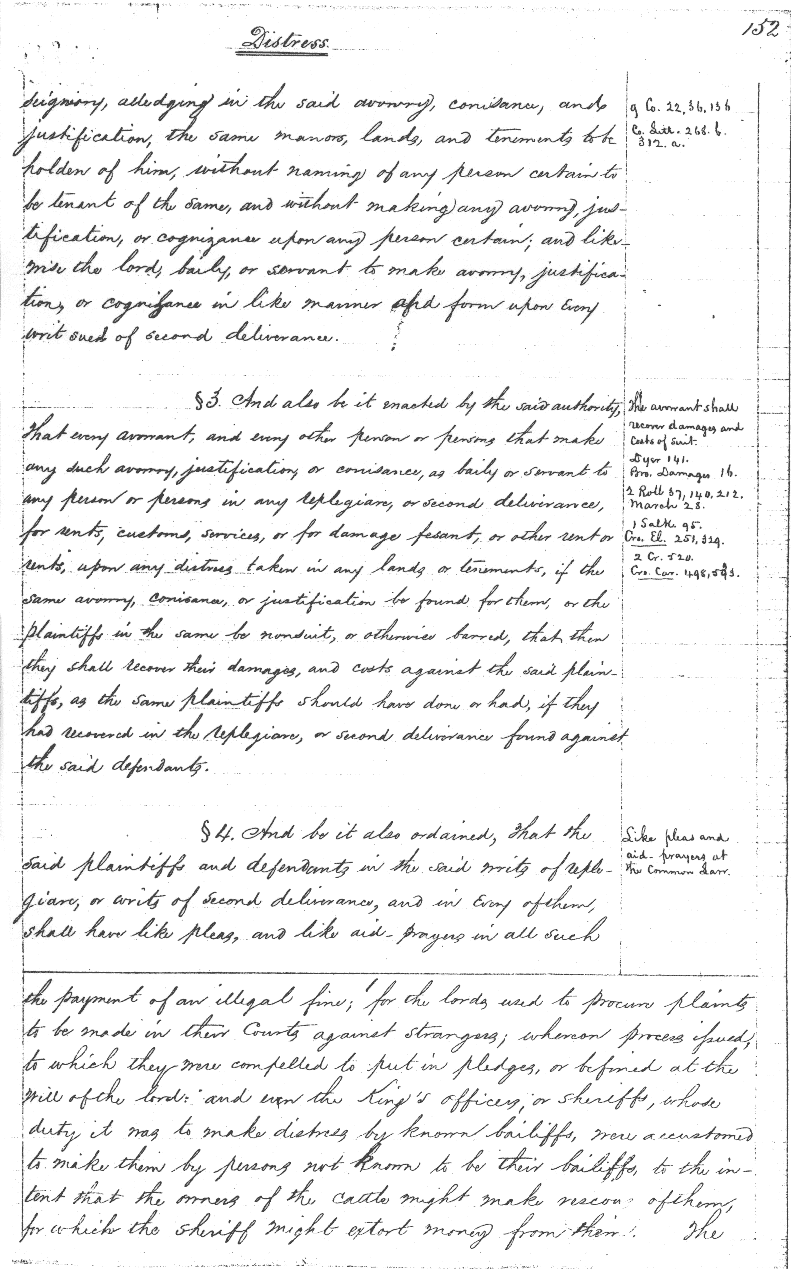 152
Distress.
seigniory, alledging in the said avowry, conisance, and
justification, the same manors, lands, and tenements to be
holden of him, without naming of any person certain to
be tenant of the same, and without making any avowry, jus-
tification, or cognizance upon any person certain; and like-
wise the lord, baily, or servant to make avowry, justifica-
tion, or cognisance in like manner and form upon Every
writ sued of second deliverance.
9 Co. 22, 36, 136
Co. Litt. 268. b.
312. a.
§3. And also be it enacted by the said authority,
That every avowant, and every other person or persons that make
any such avowry, justification, or conisance, as baily or servant to
any person or persons in any replegiare, or second deliverance,
for rents, customs, services, or for damage fesant, or other rent or
rents, upon any distress taken in any lands or tenements, if the
same avowry, conisance, or justification be found for them, or the
plaintiffs in the same be nonsuit, or otherwise barred, that then
they shall recover their damages, and costs against the said plain-
tiffs, as the same plaintiffs should have done or had, if they
had recovered in the replegiare, or second deliverance found against
the said defendants.
The avowant shall
recover damages and
Costs of suit.
Dyer 141.
Bro. Damages 16.
2 Roll 37, 140, 212.
March 28.
1 Salk. 95.
Cro. El. 257, 329.
2 Cr. 520.
Cro. Car. 498, 533.
§4. And be it also ordained, That the
said plaintiffs and defendants in the said writs of reple-
giare, or writs of second deliverance, and in Every of them,
shall have like pleas, and like aid-prayers in all such
Like pleas and
aid-prayers at
the Common Law.
the payment of an illegal fine; for the lords used to procure plaints
to be made in their Courts against strangers; whereon process issued,
to which they were compelled to put in pledges, or be fined at the
will of the lord: and even the King's officers, or sheriffs, whose
duty it was to make distress by known bailiffs, were accustomed
to make them by persons not known to be their bailiffs, to the in-
tent that the owners of the cattle might make rescous of them,
for which the sheriff might extort money from them. The